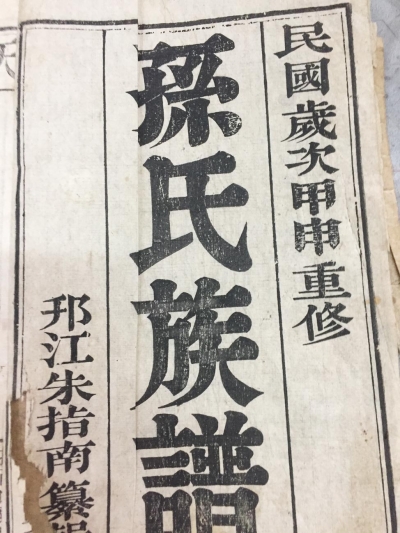 民國歲次甲申重修
孫氏族譜
邗江朱指南纂輯